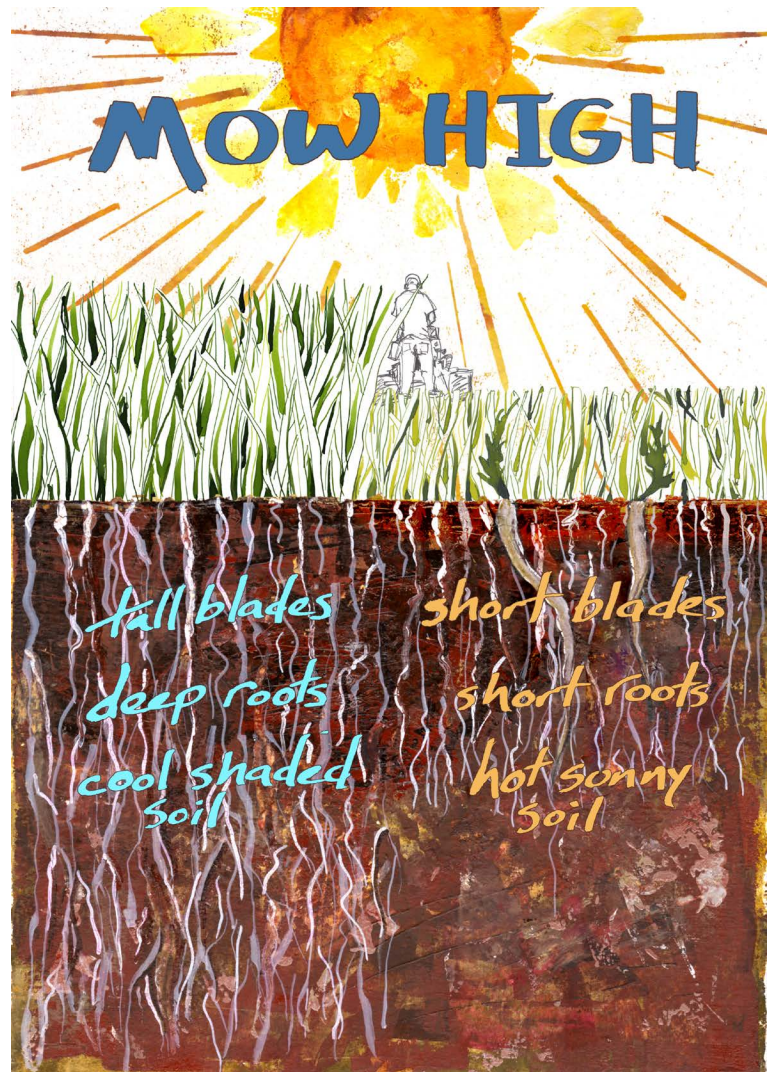 MOW HIGH
tall blades
deep roots
cool shaded
soil
short blades
short roots
hot sunny
soil